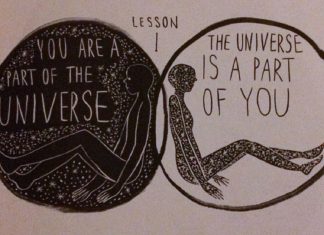 LESSON
1
YOU ARE A
PART OF THE
UNIVERSE
THE UNIVERSE
IS A PART
OF YOU